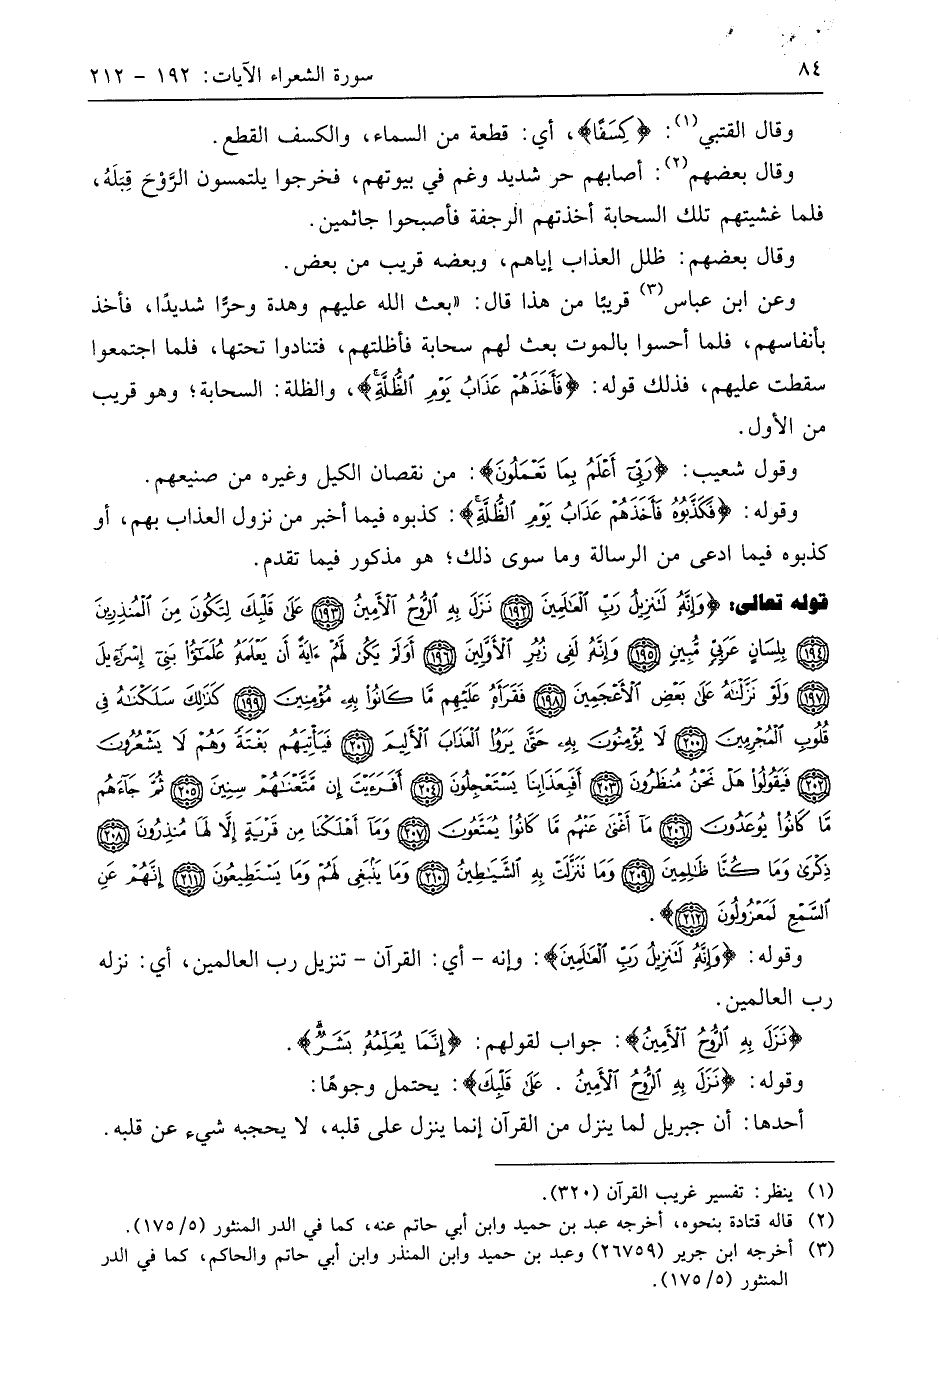 ٨٤
سورة الشعراء الآيات: ١٩٢ - ٢١٢
وقال القتبي(١): ﴿كِسَفًا﴾، أي: قطعة من السماء، والكسف القطع.
وقال بعضهم(٢): أصابهم حر شديد وغم في بيوتهم، فخرجوا يلتمسون الرَّوْحَ قِبَلَهُ،
فلما غشيتهم تلك السحابة أخذتهم الرجفة فأصبحوا جاثمين.
وقال بعضهم: ظلل العذاب إياهم، وبعضه قريب من بعض.
وعن ابن عباس(٣) قريبًا من هذا قال: «بعث الله عليهم وهدة وحرًّا شديدًا، فأخذ
بأنفاسهم، فلما أحسوا بالموت بعث لهم سحابة فأظلتهم، فتنادوا تحتها، فلما اجتمعوا
سقطت عليهم، فذلك قوله: ﴿فَأَخَذَهُمْ عَذَابُ يَوْمِ ٱلظُّلَّةِۚ﴾، والظلة: السحابة؛ وهو قريب
من الأول.
وقول شعيب: ﴿رَبِّيٓ أَعْلَمُ بِمَا تَعْمَلُونَ﴾: من نقصان الكيل وغيره من صنيعهم.
وقوله: ﴿فَكَذَّبُوهُ فَأَخَذَهُمْ عَذَابُ يَوْمِ ٱلظُّلَّةِۚ﴾: كذبوه فيما أخبر من نزول العذاب بهم، أو
كذبوه فيما ادعى من الرسالة وما سوى ذلك؛ هو مذكور فيما تقدم.
قوله تعالى: ﴿وَإِنَّهُۥ لَتَنزِيلُ رَبِّ ٱلْعَٰلَمِينَ ١٩٢ نَزَلَ بِهِ ٱلرُّوحُ ٱلْأَمِينُ ١٩٣ عَلَىٰ قَلْبِكَ لِتَكُونَ مِنَ ٱلْمُنذِرِينَ
١٩٤ بِلِسَانٍ عَرَبِيٍّ مُّبِينٍ ١٩٥ وَإِنَّهُۥ لَفِى زُبُرِ ٱلْأَوَّلِينَ ١٩٦ أَوَلَمْ يَكُن لَّهُمْ ءَايَةً أَن يَعْلَمَهُۥ عُلَمَٰٓؤُا۟ بَنِىٓ إِسْرَٰٓءِيلَ
١٩٧ وَلَوْ نَزَّلْنَٰهُ عَلَىٰ بَعْضِ ٱلْأَعْجَمِينَ ١٩٨ فَقَرَأَهُۥ عَلَيْهِم مَّا كَانُوا۟ بِهِۦ مُؤْمِنِينَ ١٩٩ كَذَٰلِكَ سَلَكْنَٰهُ فِى
قُلُوبِ ٱلْمُجْرِمِينَ ٢٠٠ لَا يُؤْمِنُونَ بِهِۦ حَتَّىٰ يَرَوُا۟ ٱلْعَذَابَ ٱلْأَلِيمَ ٢٠١ فَيَأْتِيَهُم بَغْتَةً وَهُمْ لَا يَشْعُرُونَ
٢٠٢ فَيَقُولُوا۟ هَلْ نَحْنُ مُنظَرُونَ ٢٠٣ أَفَبِعَذَابِنَا يَسْتَعْجِلُونَ ٢٠٤ أَفَرَءَيْتَ إِن مَّتَّعْنَٰهُمْ سِنِينَ ٢٠٥ ثُمَّ جَآءَهُم
مَّا كَانُوا۟ يُوعَدُونَ ٢٠٦ مَآ أَغْنَىٰ عَنْهُم مَّا كَانُوا۟ يُمَتَّعُونَ ٢٠٧ وَمَآ أَهْلَكْنَا مِن قَرْيَةٍ إِلَّا لَهَا مُنذِرُونَ ٢٠٨
ذِكْرَىٰ وَمَا كُنَّا ظَٰلِمِينَ ٢٠٩ وَمَا تَنَزَّلَتْ بِهِ ٱلشَّيَٰطِينُ ٢١٠ وَمَا يَنۢبَغِى لَهُمْ وَمَا يَسْتَطِيعُونَ ٢١١ إِنَّهُمْ عَنِ
ٱلسَّمْعِ لَمَعْزُولُونَ ٢١٢﴾.
وقوله: ﴿وَإِنَّهُۥ لَتَنزِيلُ رَبِّ ٱلْعَٰلَمِينَ﴾: وإنه - أي: القرآن - تنزيل رب العالمين، أي: نزله
رب العالمين.
﴿نَزَلَ بِهِ ٱلرُّوحُ ٱلْأَمِينُ﴾: جواب لقولهم: ﴿إِنَّمَا يُعَلِّمُهُۥ بَشَرٌۗ﴾.
وقوله: ﴿نَزَلَ بِهِ ٱلرُّوحُ ٱلْأَمِينُ . عَلَىٰ قَلْبِكَ﴾: يحتمل وجوهًا:
أحدها: أن جبريل لما ينزل من القرآن إنما ينزل على قلبه، لا يحجبه شيء عن قلبه.
(١) ينظر: تفسير غريب القرآن (٣٢٠).
(٢) قاله قتادة بنحوه، أخرجه عبد بن حميد وابن أبي حاتم عنه، كما في الدر المنثور (١٧٥/٥).
(٣) أخرجه ابن جرير (٢٦٧٥٩) وعبد بن حميد وابن المنذر وابن أبي حاتم والحاكم، كما في الدر
المنثور (١٧٥/٥).